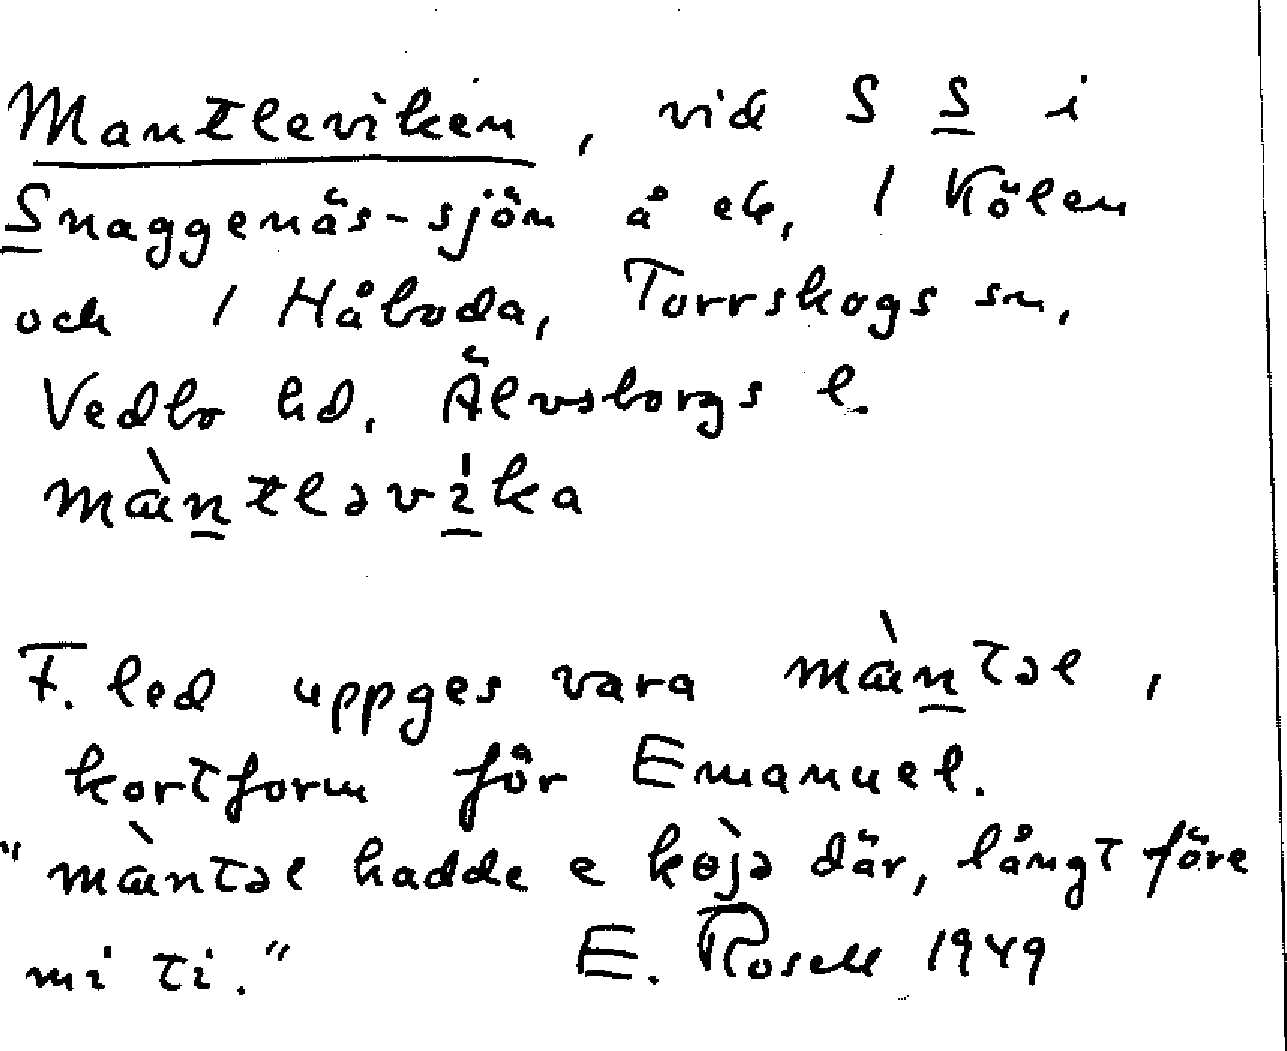 Mantleviken, vid S S i
Snaggenäs-sjön å ek, 1 Kölen
och 1 Håboda, Torrskogs sn,
Vedbo hd, Älvsborgs l.
mὰntləvíka
F. led uppges vara mὰntəl,
kortform för Emanuel.
"mὰntəl hadde e kɵ̀jə där, långt före
mi ti." E. Rosell 1949